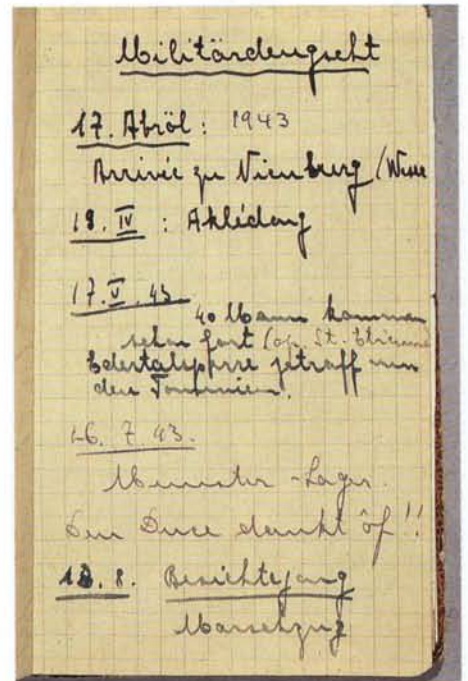 Militärdengscht
17. Abröl: 1943
Arrivée zu Nienburg / Weser
18. IV : Aklédong
17. V. 43
40 Mann komman
schon fort (op. St. Etienne
Edertalsperre getraff vun
den Tommien.
26. 7. 43.
Munster - Lager.
Den Duce dankt ôf !!
12. 8.
Marschzug